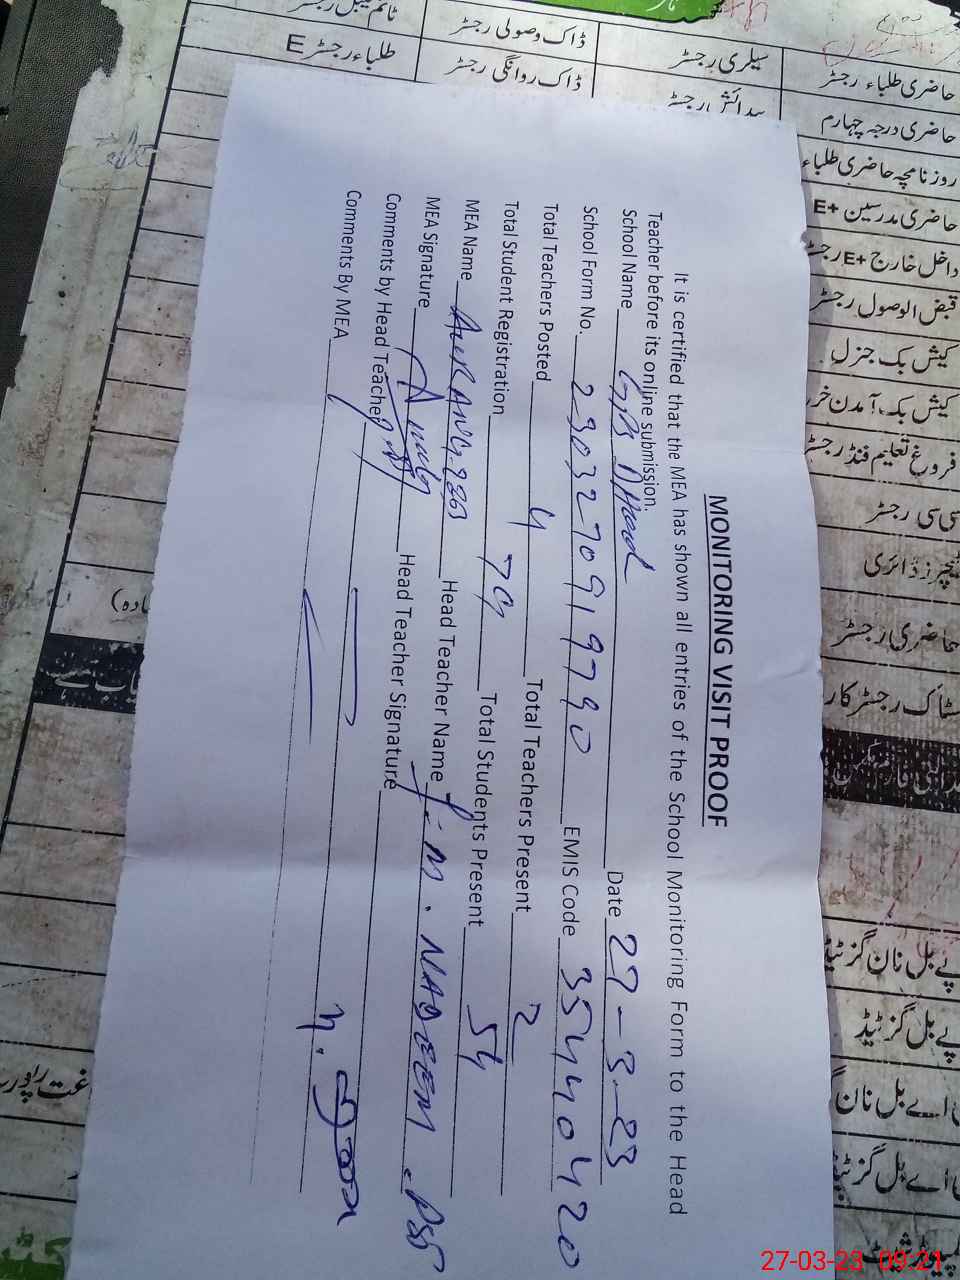 MONITORING VISIT PROOF
It is certified that the MEA has shown all entries of the School Monitoring Form to the Head
Teacher before its online submission.
School Name GPS Date 27-3-23
School Form No. 2303270919790 EMIS Code 35440420
Total Teachers Posted 4 Total Teachers Present 2
Total Student Registration 79 Total Students Present 54
MEA Name AURANGZEB Head Teacher Name M. NADEEM .PST
MEA Signature Head Teacher Signature
Comments by Head Teacher
Comments By MEA
ٹائم ٹیبل رجسٹر
طلباء رجسٹر E
ڈاک وصولی رجسٹر
ڈاک روانگی رجسٹر
سیلری رجسٹر
پیدائش رجسٹر
حاضری طلباء رجسٹر
حاضری درجہ چہارم
روزنامچہ حاضری طلباء
حاضری مدرسین +E
داخل خارج +E رجسٹر
قبض الوصول رجسٹر
کیش بک جنرل
کیش بک آمدن
فروغ تعلیم فنڈ رجسٹر
سی سی رجسٹر
ٹیچرز ڈائری
حاضری رجسٹر
سٹاک رجسٹر
پے بل نان گزٹیڈ
پے بل گزٹیڈ
اے بل نان
اے بل گزٹیڈ
27-03-23 09:21